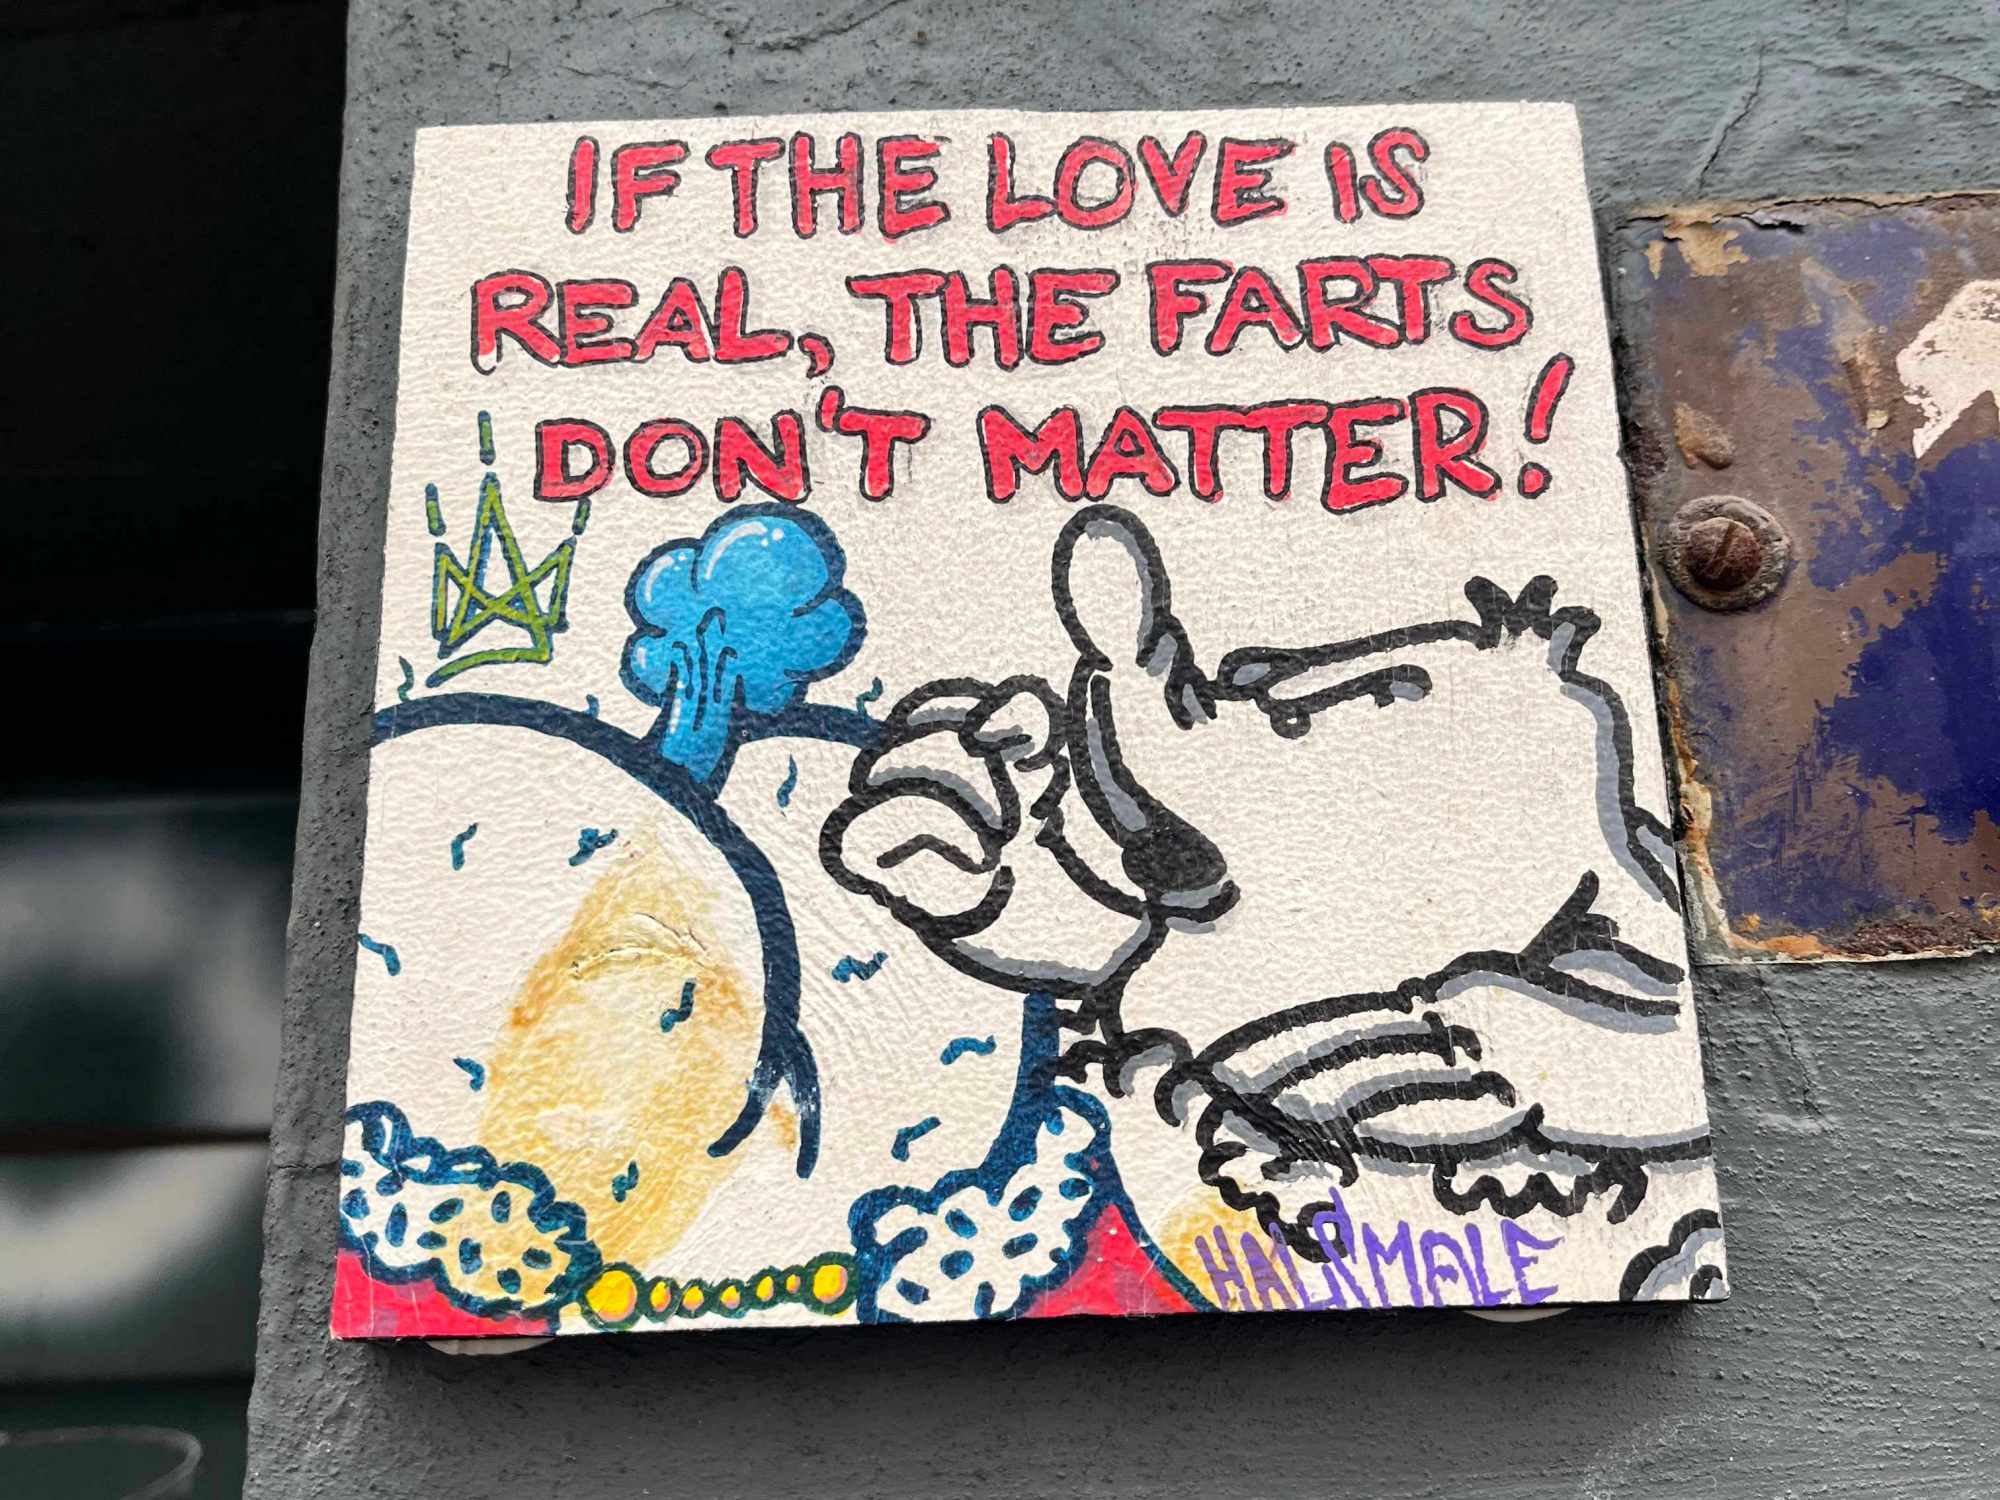 IF THE LOVE IS
REAL, THE FARTS
DON'T MATTER!